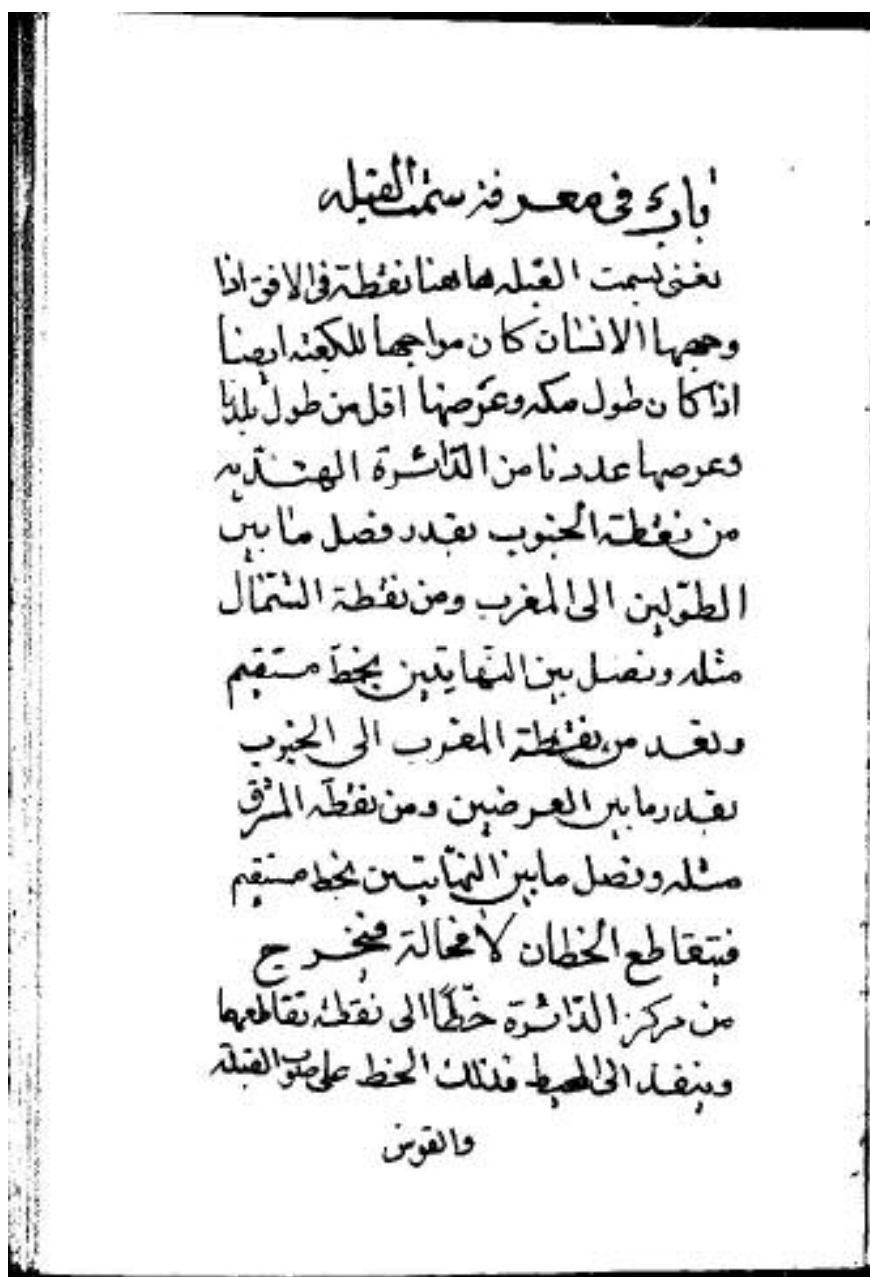 باب في معرفة سمت القبله
نعنى بسمت القبله هاهنا نقطة في الافق اذا
وجهها الانسان كان مواجها للكعبه ايضا
اذا كان طول مكه وعرضها اقل من طول بلدنا
وعرضها عددنا من الدّائرة الهنديه
من نقطة الجنوب بقدر فضل ما بين
الطّولين الى المغرب ومن نقطة الشّمال
مثله ونصل بين النّهايتين بخطّ مستقيم
ونعد من نقطة المغرب الى الجنوب
بقدر ما بين العرضين ومن نقطة المشرق
مثله ونصل ما بين النّهايتين بخط مستقيم
فيتقاطع الخطان لا محالة فنخرج
من مركز الدّائرة خطّا الى نقطة تقاطعهما
وينفذ الى المحيط فذلك الخط على صوب القبلة
والقوس